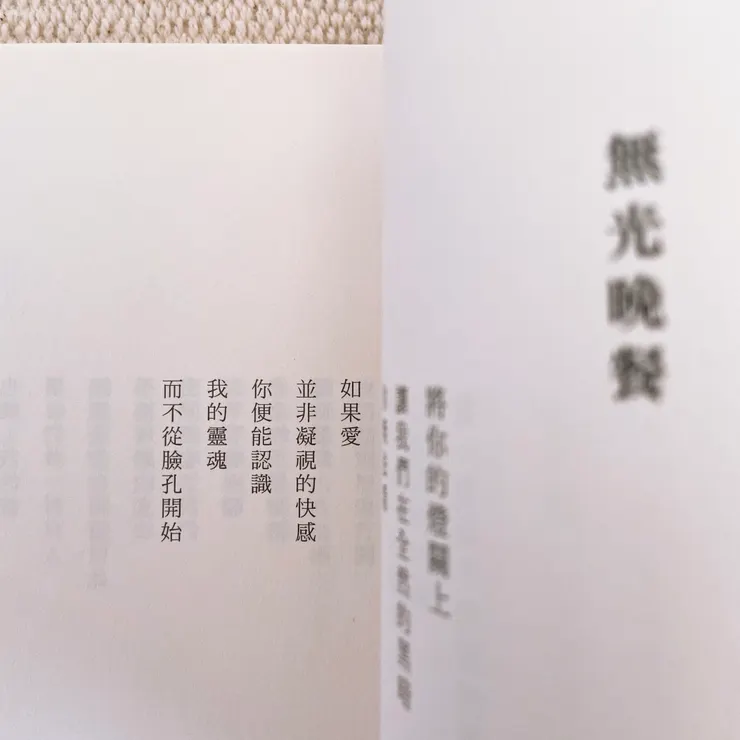 無光晚餐
將你的燈關上
讓我們在全然的黑暗
如果愛
並非凝視的快感
你便能認識
我的靈魂
而不從臉孔開始